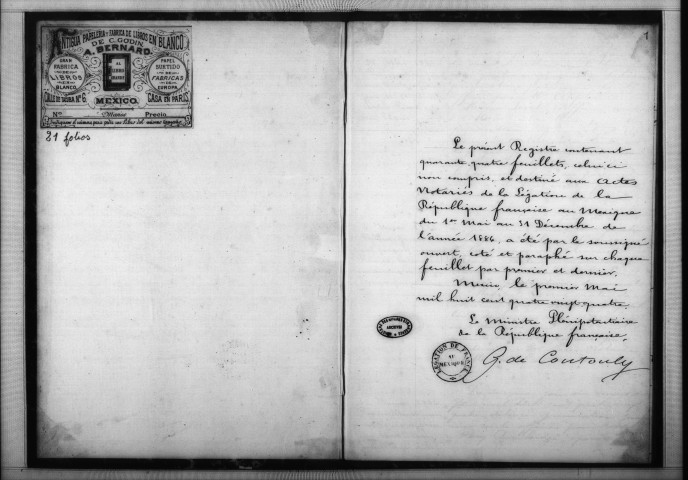 ANTIGUA PAPELERIA Y FABRICA DE LIBROS EN BLANCO
DE C. GODIN
A. BERNARD.
GRAN
FABRICA
DE
LIBROS
EN
BLANCO
AL
LIBRO
MAYOR
PAPEL
SURTIDO
DE
FABRICAS
DE
EUROPA
CALLE DE TACUBA Nº 6
MEXICO.
CASA EN PARIS
Nº
Manos
Precio
21 folios
1
Le présent Registre contenant
quarante quatre feuillets, celui ci
non compris, et destiné aux Actes
Notariés de la Légation de la
République française au Mexique
du 1er Mai au 31 Décembre de
l'année 1886, a été par le soussigné
ouvert, coté et paraphé sur chaque
feuillet par premier et dernier.
Mexico, le premier Mai
mil huit cent quatre vingt quatre.
Le Ministre Plénipotentiaire
de la République française,
G. de Coutouly
ARCHIVES
LEGATION DE FRANCE
AU
MEXIQUE